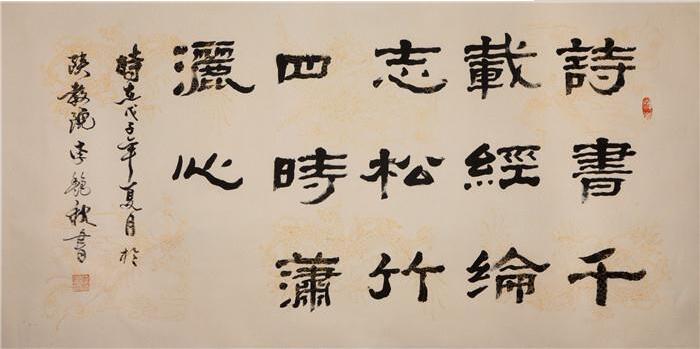 詩書千
載經綸
志松竹
四時瀟
灑心
時在戊子年夏月於
陝教院李乾秋書